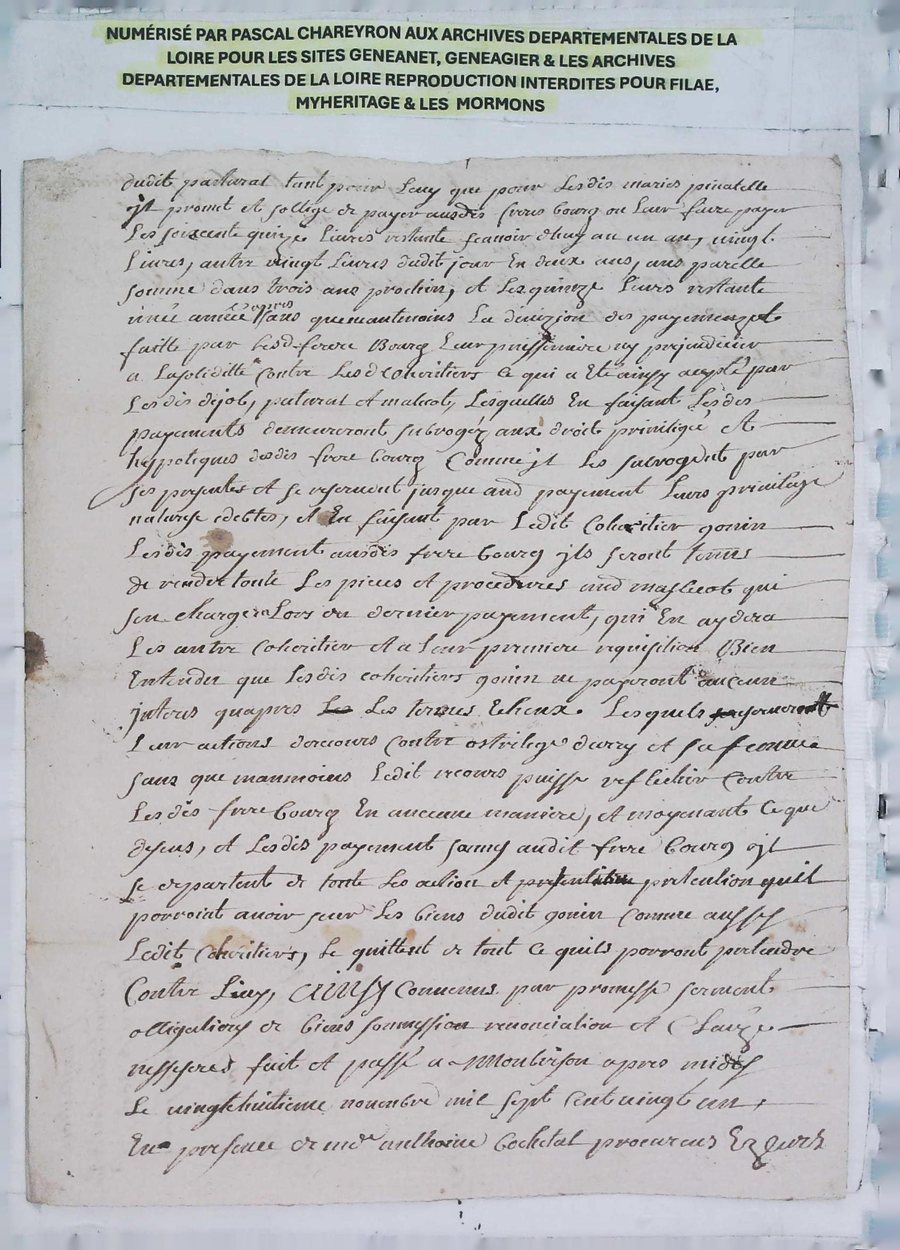 NUMÉRISÉ PAR PASCAL CHAREYRON AUX ARCHIVES DEPARTEMENTALES DE LA
LOIRE POUR LES SITES GENEANET, GENEAGIER & LES ARCHIVES
DEPARTEMENTALES DE LA LOIRE REPRODUCTION INTERDITES POUR FILAE,
MYHERITAGE & LES MORMONS
dudit paturat tant pour Luy que pour Lesdis maries pinatelle
jl promet et soblige de payer ausdis freres bourg ou Leur faire payer
Les soixente quinze Livres restante scauoir dhuy au un an, vingt
Livres, autre vingt Livres dudit jour En deux ans, une pareille
somme dans trois ans prochein, et Lesquinze Liures restante
année apres sans quemantmoins La diuizion des payements
faitte par Lesd frere Bourg Leur puisse ny prejudicier
a La soliditte contre Lesd coheritiers ce qui a Eté ainsy acepté par
Lesdis dijob, paturat et malicot, Lesquelles En faisant Lesdis
payements demeureront subroges aux droit priuiligie et
hypotiques desdis frere bourg Comme jl Les subrogent par
ses presentes et se reseruent jusque aud payement Leurs priuilege
nature edebtes, et En faisant par Ledit Coheritier gonin
Lesdis payement ausdis frere bourg jls seront tenus
de rendre toute Les pieces et procedures aud qui
son chargera Lors du dernier payement, qui En aydera
Les autre Coheritier et a Leur premiere requisition Bien
Entendu que Lesdis coheritiers gonin ne payeront aucun
jnteres quapres Les termes Echeux. Lesquels
Leur actions derecours contre et sa femme
sans que manmoins Ledit recours puisse reflechir contre
Lesdis frere bourg En aucune maniere, et moyenant Ce que
desus, et Lesdis payement audit frere bourg jl
se departent de toute Les action et pretention quil
porroint auoir sur Les biens dudit gonin comme aussy
Ledit Coheritiers, se quittent de tout Ce quils porront pretendre
Contre Luy, AINSY Conuenus par promesse serment
obligations de biens soumission renonciation et Clauze
fait et passé a Montbrison apres midy
Le vingthuitieme nouembre mil sept Cent vingt un,
En presence de anthoine procureur